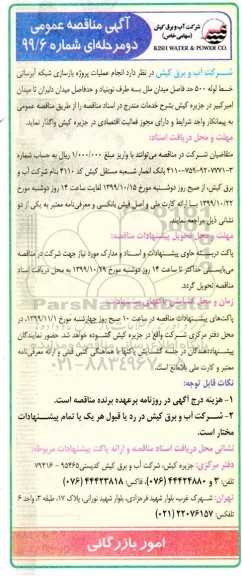 شرکت آب و برق کیش
(سهامی خاص)
KISH WATER & POWER CO.
آگهی مناقصه عمومی
دو مرحله‌ای شماره ۹۹/۶
شرکت آب و برق کیش در نظر دارد انجام عملیات پروژه بازسازی شبکه آبرسانی
خط لوله ۵۰۰ حد فاصل میدان ملل به طرف نوبنیاد و حدفاصل میدان دلیران تا میدان
امیرکبیر در جزیره کیش بشرح خدمات مندرج در اسناد مناقصه را از طریق مناقصه عمومی
به پیمانکار واجد شرایط و دارای مجوز فعالیت اقتصادی در جزیره کیش واگذار نماید.
مهلت و محل دریافت اسناد:
متقاضیان شرکت در مناقصه می‌توانند با واریز مبلغ ۱/۰۰۰/۰۰۰ ریال به حساب شماره
بانک انصار شعبه مستقل کیش کد ۴۱۱۰ بنام شرکت آب و
برق کیش، از صبح روز دوشنبه مورخ ۱۳۹۹/۱۰/۱۵ لغایت ساعت ۱۴ روز دوشنبه مورخ
۱۳۹۹/۱۰/۲۲ با ارائه کارت ملی و اصل فیش بانکی و معرفی‌نامه معتبر به یکی از دو
نشانی ذیل مراجعه نمایند.
مهلت و محل تحویل پیشنهادات مناقصه:
پاکت دربسته حاوی پیشنهادات و اسناد و مدارک مورد نیاز جهت شرکت در مناقصه
می‌بایستی حداکثر تا ساعت ۱۴ روز دوشنبه مورخ ۱۳۹۹/۱۰/۲۹ به محل دریافت اسناد
مناقصه تحویل گردد.
زمان و محل گشایش پاکتهای پیشنهادات:
پاکت‌های پیشنهادات مناقصه در ساعت ۱۰ صبح روز چهارشنبه مورخ ۱۳۹۹/۱۱/۱ در
محل دفتر مرکزی شرکت واقع در جزیره کیش گشوده خواهد شد. حضور نمایندگان
پیشنهاددهندگان در جلسه گشایش پاکتها با هماهنگی کتبی قبلی و ارائه معرفی‌نامه
معتبر و کارت ملی بلامانع است.
نکات قابل توجه:
۱- هزینه درج آگهی در روزنامه برعهده برنده مناقصه است.
۲- شرکت آب و برق کیش در رد یا قبول هر یک یا تمام پیشنهادات
مختار است.
نشانی محل دریافت اسناد مناقصه و ارائه پاکت پیشنهادات مربوطه:
دفتر مرکزی: جزیره کیش، شرکت آب و برق کیش کدپستی ۹۵۴۶۵-۷۹۴۱۶
تلفن: ۳ و ۴۴۴۲۴۸۸۰ (۰۷۶)، فاکس: ۴۴۴۲۳۸۱۸ (۰۷۶)
تهران: شهرک غرب، بلوار شهید فرحزادی، بلوار شهید نورانی، پلاک ۱۷، طبقه ۳، واحد ۶
تلفکس: ۲۲۰۷۶۱۵۷ (۰۲۱)
امور بازرگانی
ParsNamadData
۰۲۱-۸۸۳۴۹۶۷۰